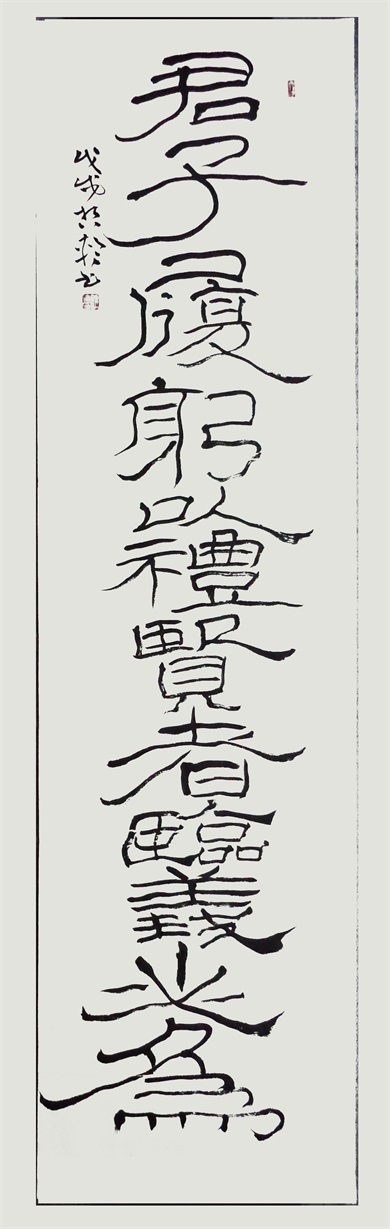 君子履躬以禮賢者臨義必為
戊戌